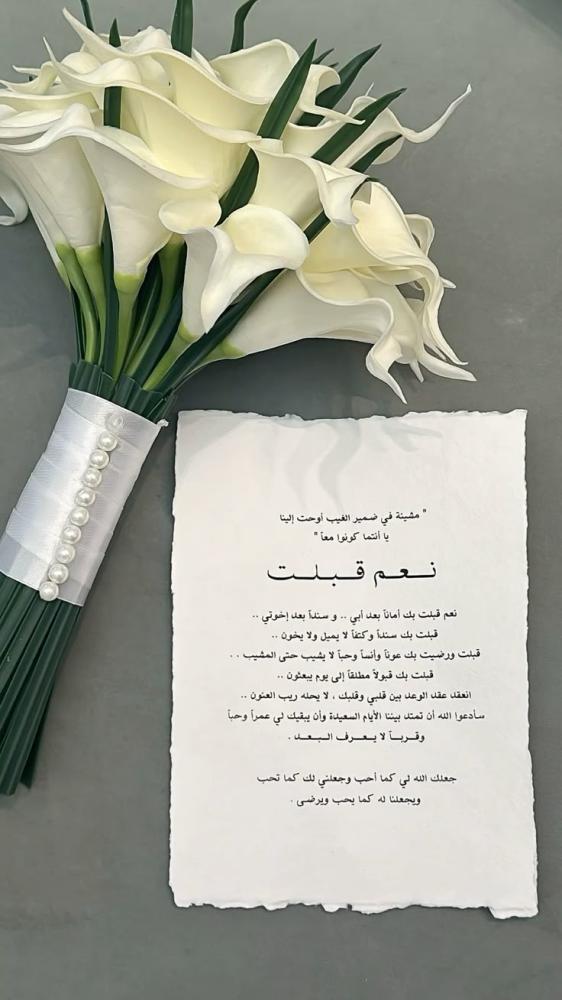 " مشيئة في ضمير الغيب أوحت إلينا
يا أنتما كونوا معاً "
نعم قبلت
نعم قبلت بك أماناً بعد أبي .. و سنداً بعد إخوتي ..
قبلت بك سنداً وكتفاً لا يميل ولا يخون ..
قبلت ورضيت بك عوناً وأنساً وحباً لا يشيب حتى المشيب . .
قبلت بك قبولاً مطلقاً إلى يوم يبعثون ..
انعقد عقد الوعد بين قلبي وقلبك ، لا يحله ريب المنون ..
سأدعوا الله أن تمتد بيننا الأيام السعيدة وأن يبقيك لي عمراً وحباً
وقربــاً لا يــعــرف الــبــعــد .
جعلك الله لي كما أحب وجعلني لك كما تحب
ويجعلنا له كما يحب ويرضى .